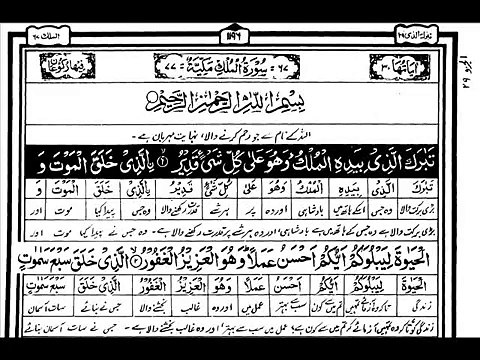 تبٰرک الذی ۲۹ ۱۱۹۶ الملک ۶۷
اٰیَاتُهَا ۳۰ ۶۷ = سُوْرَةُ الْمُلْكِ مَكِّيَّةٌ = ۷۷ رکوعاتها
الجزء ۲۹
بِسْمِ اللّٰهِ الرَّحْمٰنِ الرَّحِيْمِ
اللہ کے نام سے جو رحم کرنے والا، نہایت مہربان ہے۔
تَبٰرَكَ الَّذِیْ بِیَدِهِ الْمُلْكُ وَهُوَ عَلٰی كُلِّ شَیْءٍ قَدِیْرُ ۙ﴿۱﴾ اِ۟لَّذِیْ خَلَقَ الْمَوْتَ وَ
تَبٰرَكَ الَّذِیْ بِیَدِهِ الْمُلْكُ وَهُوَ عَلٰی كُلِّ شَیْءٍ قَدِیْرُ ِالَّذِیْ خَلَقَ الْمَوْتَ وَ
بڑی برکت والا وہ جس اسکے ہاتھ میں بادشاہی اور وہ پر ہر شے قدرت رکھنے والا وہ جس پیدا کیا موت اور
بڑی برکت والا ہے وہ جس کے ہاتھ میں ہے بادشاہی اور وہ ہر شے پر قدرت رکھنے والا ہے، وہ جس نے پیدا کیا موت اور
الْحَیٰوةَ لِیَبْلُوَكُمْ اَیُّكُمْ اَحْسَنُ عَمَلًا ؕ وَهُوَ الْعَزِیْزُ الْغَفُوْرُ ۙ﴿۲﴾ الَّذِیْ خَلَقَ سَبْعَ سَمٰوٰتٍ
الْحَیٰوةَ لِیَبْلُوَكُمْ اَیُّكُمْ اَحْسَنُ عَمَلًا وَهُوَ الْعَزِیْزُ الْغَفُوْرُ الَّذِیْ خَلَقَ سَبْعَ سَمٰوٰتٍ
زندگی تاکہ وہ آزمائے تمہیں تم میں سے کون سب سے بہتر عمل میں اور وہ غالب بخشنے والا جس نے بنائے سات آسمان
زندگی کو تاکہ وہ تمہیں آزمائے کہ تم میں سے کون ہے عمل میں سب سے بہتر، اور وہ غالب بخشنے والا ہے، جس نے سات آسمان بنائے